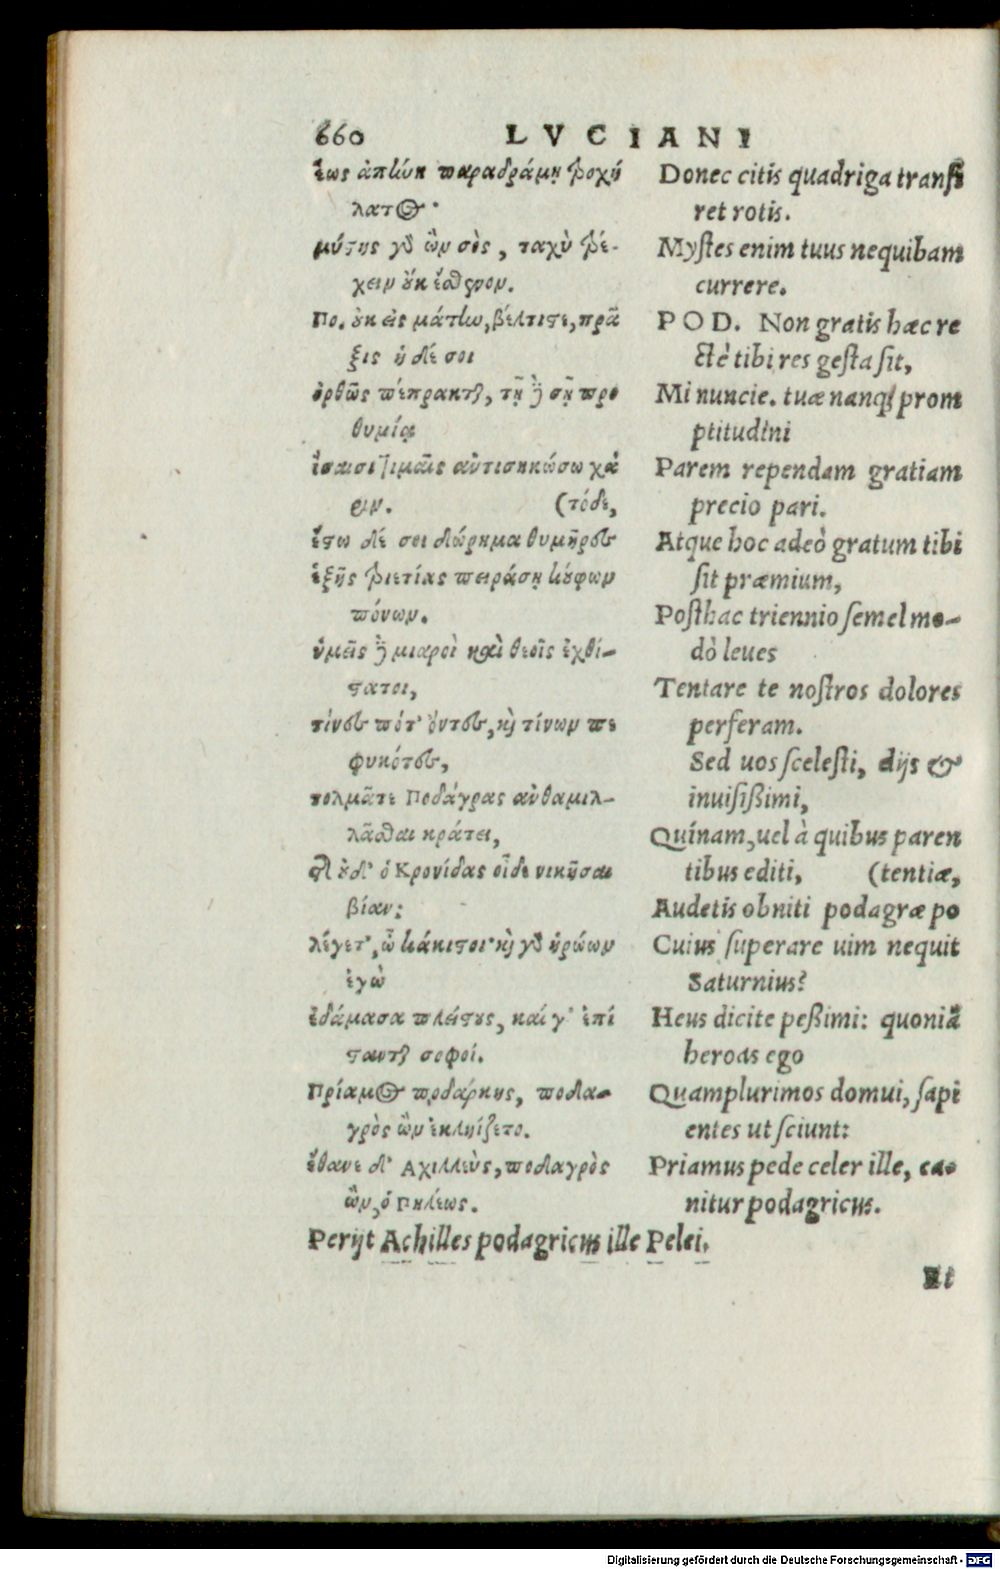 660 LVCIANI
ἕως ἀπλύνῃ παραδράμῃ τροχή
λατος·
μύστης γὰρ ὢν σὸς, ταχὺ τρέ-
χειν οὐκ ἔσθενον.
Πο. οὐκ εἰς μάτην, βέλτιστε, πρᾶ
ξις ἥδέ σοι
ὀρθῶς πέπρακται, τῇ δὲ σῇ προ
θυμίᾳ
ἰσαισι τιμαῖς ἀντισηκώσω χά
ριν. (τόδε,
ἔστω δέ σοι δώρημα θυμῆρες
ἑξῆς τριετίας πειράσῃ κούφων
πόνων.
ὑμεῖς δὲ μιαροὶ καὶ θεοῖς ἐχθί-
στατοι,
τίνες πότ' ὄντες, καὶ τίνων πε
φυκότες,
τολμᾶτε Ποδάγρας ἀνθαμιλ-
λᾶσθαι κράτει,
ᾆς οὐδ' ὁ Κρονίδας οἶδε νικῆσαι
βίαν;
λέγετ', ὦ κάκιστοι· καὶ γὰρ ἡρώων
ἐγὼ
ἐδάμασα πλείστους, καί γ' ἐπί
στανται σοφοί.
Πρίαμος ποδάρκης, ποδα-
γρὸς ὢν ἐκληίζετο.
ἔθανε δ' Αχιλλεὺς, ποδαγρὸς
ὢν, ὁ Πηλέως.
Donec citis quadriga transi
ret rotis.
Mystes enim tuus nequibam
currere.
POD. Non gratis hæc re
ctè tibi res gesta sit,
Mi nuncie. tuæ nanq; prom
ptitudini
Parem rependam gratiam
precio pari.
Atque hoc adeò gratum tibi
sit præmium,
Posthac triennio semel mo-
dò leues
Tentare te nostros dolores
perferam.
Sed uos scelesti, dijs &
inuisißimi,
Quínam, uel à quibus paren
tibus editi, (tentiæ,
Audetis obniti podagræ po
Cuius superare uim nequit
Saturnius?
Heus dicite peßimi: quoniā
heroas ego
Quamplurimos domui, sapi
entes ut sciunt:
Priamus pede celer ille, ca-
nitur podagricus.
Perijt Achilles podagricus ille Pelei.
Et
Digitalisierung gefördert durch die Deutsche Forschungsgemeinschaft - DFG